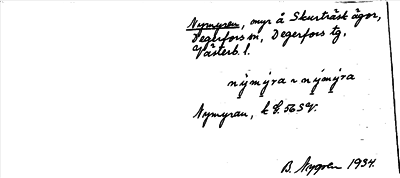 Nymyran, myr å Skurträsk ägor,
Degerfors sn, Degerfors tg,
Västerb. l.
nỵ́mỵ̀ra ~ nỵ́mỵ̀ra
Nymyran, k
B. Nygren 1934.